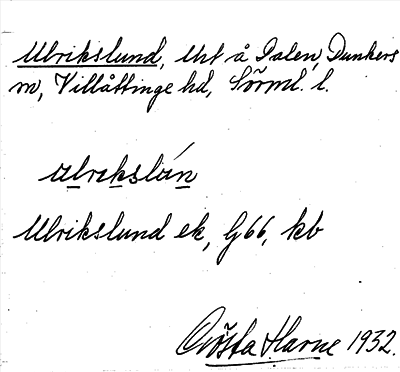 Ulrikslund, Utt å Dalen, Dunkers
sn, Villåttinge hd, Sörml. l.
ulrekslún
Ulrikslund ek, G66, kb
Gösta Harne 1932.